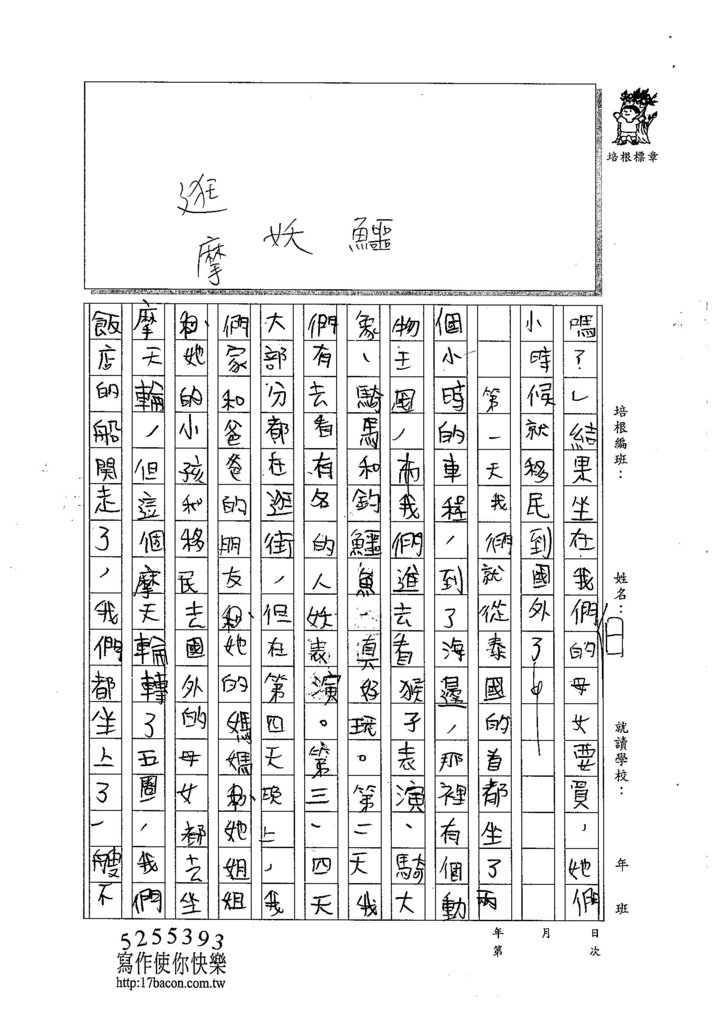 逛
摩
妖
鱷
培根標章
嗎？」結果坐在我們的母女要買，她們
小時候就移民到國外了
第一天我們就從泰國的首都坐了兩
個小時的車程，到了海邊，那裡有個動
物王國，而我們進去看猴子表演、騎大
象、騎馬和釣鱷魚，真好玩。第二天我
們有去看有名的人妖表演。第三、四天
大部分都在逛街，但在第四天晚上，我
們家和爸爸的朋友和她的媽媽和她姐姐
和她的小孩和移民去國外的母女都去坐
摩天輪，但這個摩天輪轉了五圈，我們
飯店的船開走了，我們都坐上了一艘不
培根編班：
姓名：
就讀學校：
年 班
年 月 日
第 次
5255393
寫作使你快樂
http:17bacon.com.tw